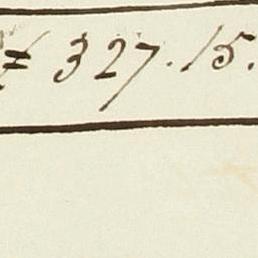 ≠ 327.15.